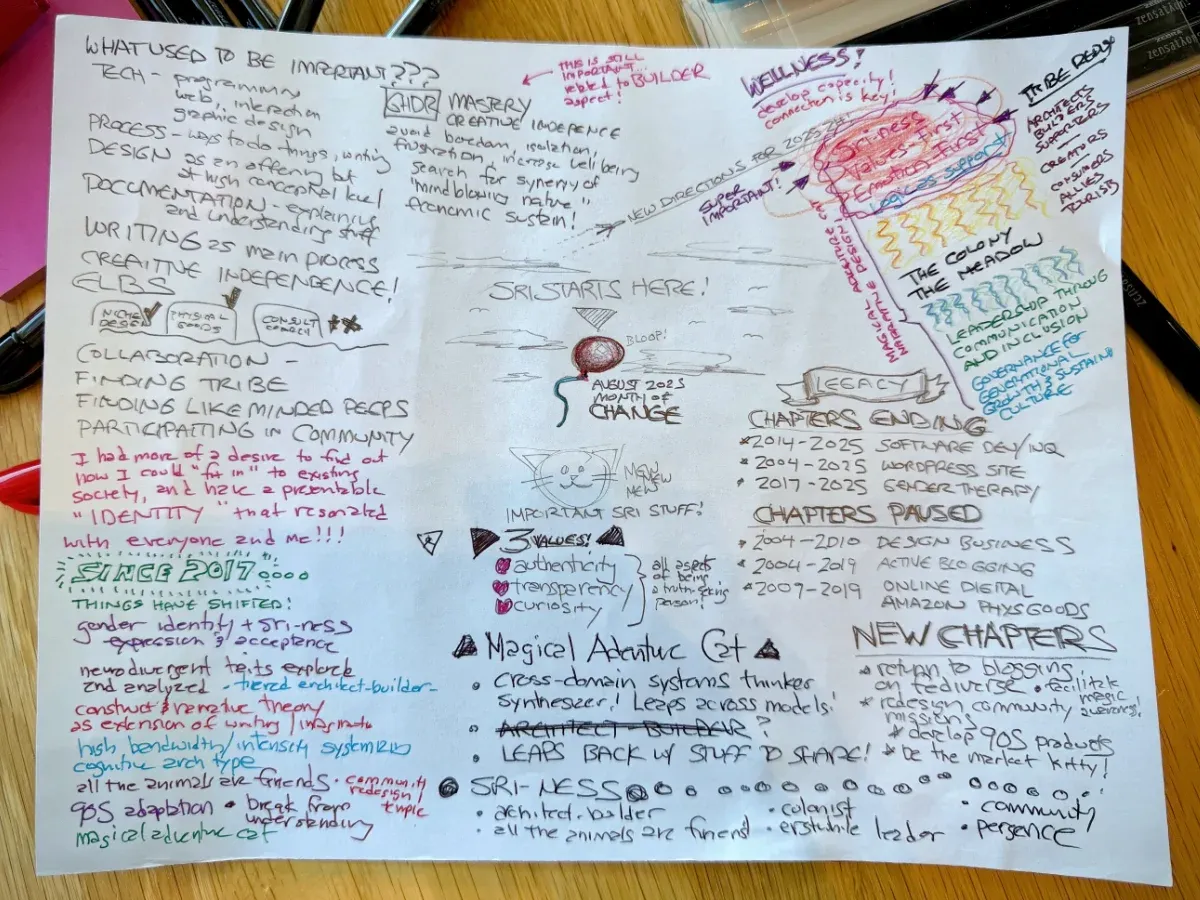 WHAT USED TO BE IMPORTANT???
TECH - programming
web, interaction
graphic design
PROCESS - ways to do things, writing
DESIGN as an offering but
at high conceptual level
DOCUMENTATION - explaining
and understanding stuff
WRITING as main process
CREATIVE INDEPENDENCE!
ELBS
NICHE DESIGN
PHYSICAL GOODS
CONSULT
COLLABORATION -
FINDING TRIBE
FINDING LIKE MINDED PEEPS
PARTICIPATING IN COMMUNITY
I had more of a desire to find out
how I could "fit in" to existing
society, and have a presentable
"IDENTITY" that resonated
with everyone and me!!!
SINCE 2017
THINGS HAVE SHIFTED!
gender identity + Sri-ness
expression & acceptance
neurodivergent traits explored
and analyzed • tiered architect-builder-
construct & narrative theory
as extension of writing /
high bandwidth/intensity systemizing
cognitive archtype
all the animals are friends • community
redesign
topic
90S adaptation • break from
understanding
magical adventure cat
GHDR MASTERY
CREATIVE INDEPENCE
avoid boredom, isolation,
frustration, increase well being
search for synergy of
"mindblowing native"
economic sustain!
THIS IS STILL
IMPORTANT...
related to BUILDER
aspect!
NEW DIRECTIONS FOR 2025
SRI STARTS HERE!
BLOOP!
AUGUST 2025
MONTH OF
CHANGE
MEW
MEW
MEW
IMPORTANT SRI STUFF!
3 VALUES!
authenticity
transparency
curiosity
all aspects
of being
a truth-seeking
person!
Magical Adenture Cat
• cross-domain systems thinker
Synthesizer! Leaps across models!
• ARCHITECT-BUILDER ?
• LEAPS BACK w/ STUFF TO SHARE!
SRI-NESS
• architect-builder
• all the animals are friend
• colonist
• erstwhile leader
• community
• pergence
WELLNESS!
develop capacity!
connection is key!
SUPER
IMPORTANT!
Sri-ness
Values First
Emotion-First
Logic as support
TRIBE REDUX
ARCHITECTS
BUILDERS
SUPPORTERS
CREATORS
CONSUMERS
ALLIES
TOURISTS
THE COLONY
THE MEADOW
LEADERSHIP THROUG
COMMUNICATION
AND INCLUSION
GOVERNANCE for
GENERATIONAL
GROWTH & SUSTAIN
CULTURE
LEGACY
CHAPTERS ENDING
*2014-2025 SOFTWARE DEV/NQ
*2004-2025 WORDPRESS SITE
*2017-2025 GENDER THERAPY
CHAPTERS PAUSED
*2004-2010 DESIGN BUSINESS
*2004-2019 ACTIVE BLOGGING
*2007-2019 ONLINE DIGITAL
AMAZON PHYS GOODS
NEW CHAPTERS
* return to blogging,
on fediverse • facilitate
magic
awareness!
* redesign community
missions
* develop 90S products
* be the market kitty!